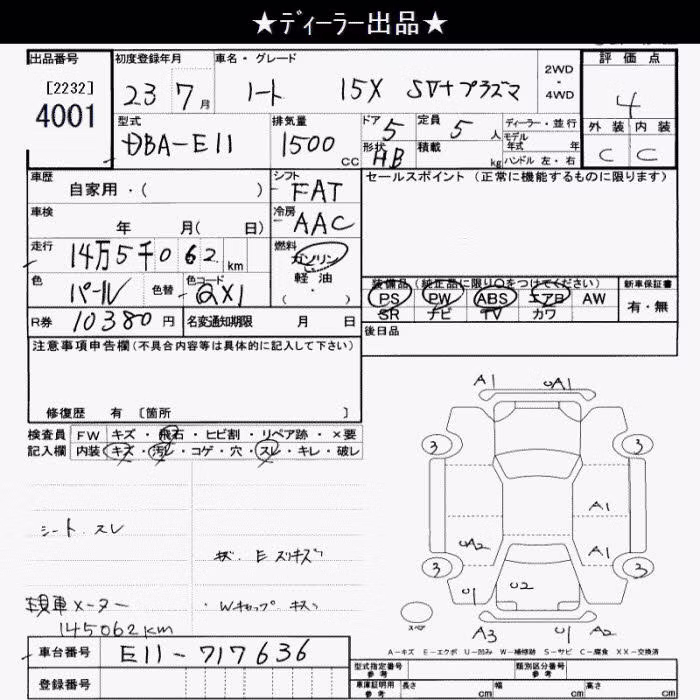 ★ディーラー出品★
出品番号 初度登録年月 車名・グレード 2WD・4WD 評価点
[2232]
4001 23 7月 ノート 15X SV+プラズマ 4
型式 排気量 ドア 定員 ディーラー・並行 外装 内装
DBA-E11 1500CC 5 5人 モデル年式 年 C C
形状 HB 積載 kg ハンドル 左・右
車歴 自家用・( ) シフト FAT セールスポイント (正常に機能するものに限ります)
車検 年 月( 日) 冷房 AAC
走行 14万5千062km 燃料 ガソリン 軽油 ( ・ )
色 パール 色替 色コード QX1 装備品(純正品に限り○をつけてください) 新車保証書
PS PW ABS エアB AW 有・無
R券 10380円 名変通知期限 月 日 SR ナビ TV カワ
注意事項申告欄(不具合内容等は具体的に記入して下さい) 後日品
修復歴 有 [箇所 ]
検査員 FW キズ・飛石・ヒビ割・リペア跡・×要
記入欄 内装 キズ・汚レ・コゲ・穴・スレ・キレ・破レ
A1 UA1
3 3
A1
UA2 A1
3 3
U1 U2
A3 U1 A2
スペア
シート.スレ
・Wキャップ キズ
145062km
A-キズ E-エクボ U-凹み W-補修跡 S-サビ C-腐食 XX-交換済
車台番号 E11-717636 型式指定番号 参考 類別区分番号 参考
登録番号 車庫証明用 参考 長さ cm 幅 cm 高さ cm